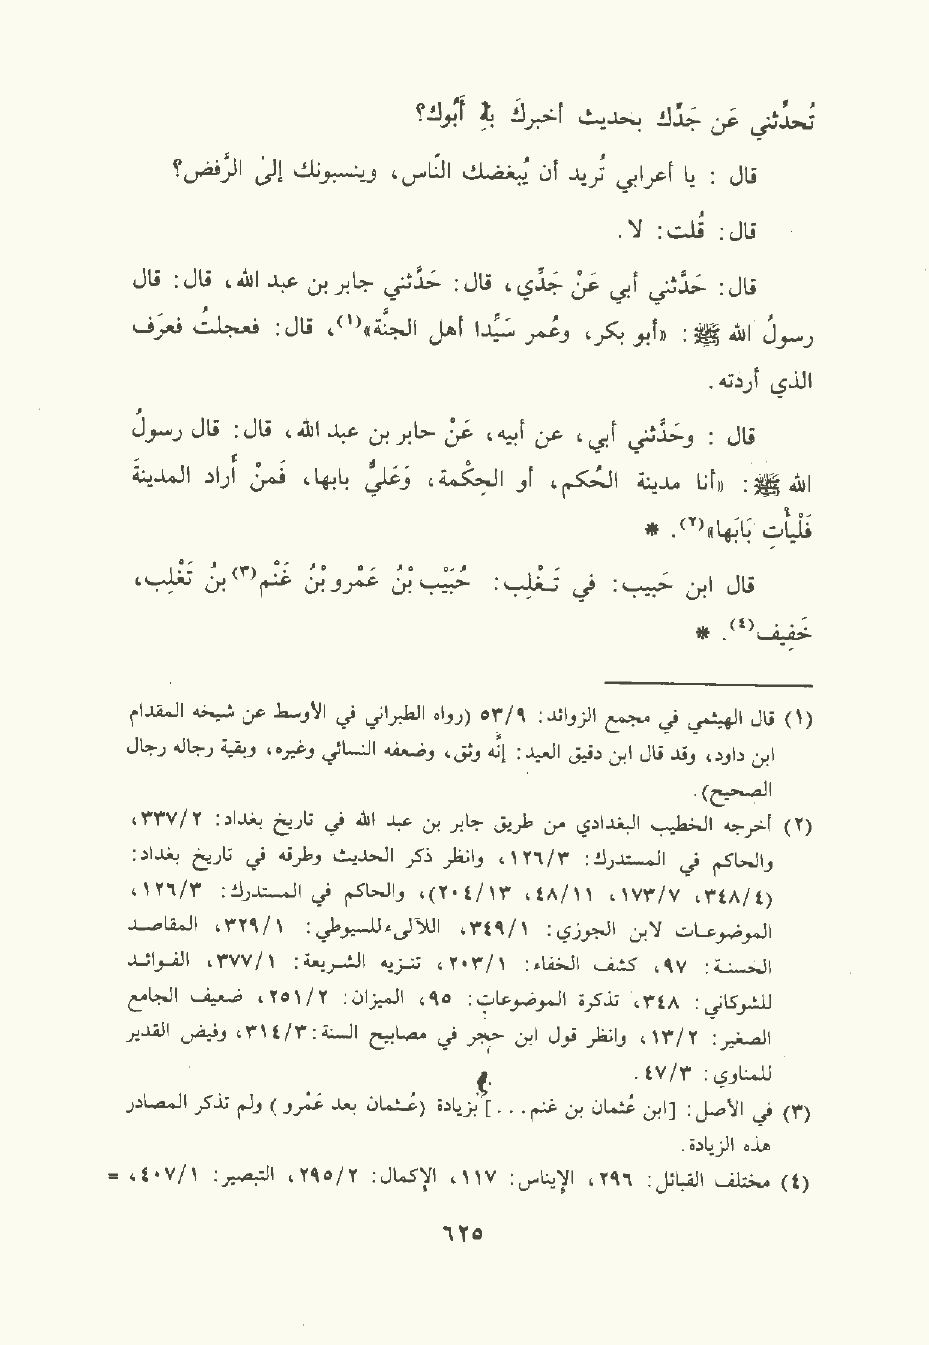 تُحدِّثني عَن جَدِّك بحديث أخبركَ بهِ أَبُوك؟
قال : يا أعرابي تُريد أن يُبغضك النَّاس، وينسبونك إلىٰ الرَّفض؟
قال: قُلت: لا.
قال: حَدَّثني أبي عَنْ جَدِّي، قال: حَدَّثني جابر بن عبد الله، قال: قال
رسولُ الله ﷺ: «أبو بكر، وعُمر سَيِّدا أهل الجنَّة»(١)، قال: فجعلتُ فعرَف
الذي أردته.
قال : وحَدَّثني أبي، عن أبيه، عَنْ جابر بن عبد الله، قال: قال رسولُ
الله ﷺ: «أنا مدينة الحُكم، أو الحِكْمة، وَعَليٌّ بابها، فَمنْ أراد المدينةَ
فَلْيَأْتِ بَابَها»(٢). *
قال ابن حَبيب: في تَـغْلِب: حُبَيْب بْنُ عَمْرو بْنُ غَنْم(٣) بنُ تَغْلِب،
خَفِيف(٤). *
(١) قال الهيثمي في مجمع الزوائد: ٥٣/٩ (رواه الطبراني في الأوسط عن شيخه المقدام
ابن داود، وقد قال ابن دقيق العيد: إنّه وثق، وضعفه النسائي وغيره، وبقية رجاله رجال
الصحيح).
(٢) أخرجه الخطيب البغدادي من طريق جابر بن عبد الله في تاريخ بغداد: ٣٣٧/٢،
والحاكم في المستدرك: ١٢٦/٣، وانظر ذكر الحديث وطرقه في تاريخ بغداد:
(٣٤٨/٤، ١٧٣/٧، ٤٨/١١، ٢٠٤/١٣)، والحاكم في المستدرك: ١٢٦/٣،
الموضوعات لابن الجوزي: ٣٤٩/١، اللآلىء للسيوطي: ٣٢٩/١، المقاصد
الحسنة: ٩٧، كشف الخفاء: ٢٠٣/١، تنزيه الشريعة: ٣٧٧/١، الفوائد
للشوكاني: ٣٤٨، تذكرة الموضوعات: ٩٥، الميزان: ٢٥١/٢، ضعيف الجامع
الصغير: ١٣/٢، وانظر قول ابن حجر في مصابيح السنة: ٣١٤/٣، وفيض القدير
للمناوي: ٤٧/٣.
(٣) في الأصل: [ابن عُثمان بن غنم...] بزيادة (عُـثمان بعد عَمْرو) ولم تذكر المصادر
هذه الزيادة.
(٤) مختلف القبائل: ٢٩٦، الإيناس: ١١٧، الإكمال: ٢٩٥/٢، التبصير: ٤٠٧/١، =
٦٢٥